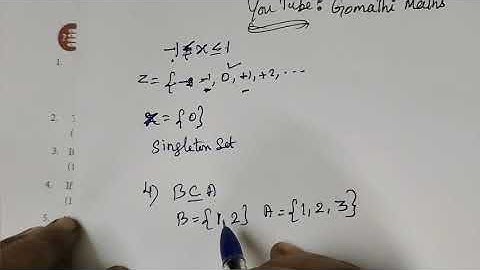 YouTube: Gomathi Maths
-1 ≤ x ≤ 1
1.
Z = { -1, 0, +1, +2, ...
2.
x = {0}
Singleton Set
3. If
4. If
4) B ⊆ A
B = {1, 2} A = {1, 2, 3}
5.